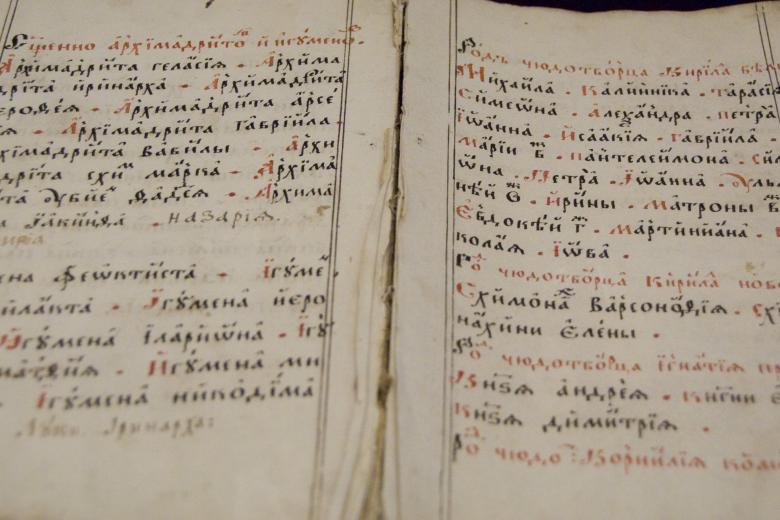 Сщ҃енно архїмадрито҆в и҆ и҆гумено҆в.
Архїмадрита геласїѧ · Архима
дрїта иринарха · Архимадрита
Архимадрита арсе
ѧ · Архимадрита гаврїила ·
хїмадрита вавилы · Архи
дрита схим марка · Архїма
та дѵвїе фадеѧ · Архима
а ꙗкинѳа · назарїѧ ·
ена феѡктиста · Їгуме
илакта · Їгумена иеро
Їгумена їларїѡна · Їгу
матѳїѧ · Игумена ми
Їгумена никодима
Луки Їринарха:
Родъ чюдотворца Кирила бѣл
Михаила · Калиника · тарасїѧ
Симеѡна · Алеѯандра · петра
Їѡанна · Исаакїѧ · Гаврїила ·
марїи в҃ · пантелеймона · си
ѡна · Петра · Їѡанна · ѹль
ѳ҃ · ирины · матроны в҃
Евдокѣи г҃ · мартинїана ·
колаѧ · Їѡва ·
Ро чюдотворца Кирила ново
Схимона Варсонѡѳїѧ · Схи
нахини Елены ·
Ро чюдотворца Їгнатїѧ пр
Кнѕѧ андреѧ · кнгини
Кнѕѧ димитрїѧ ·
Ро чюдо Корнилїѧ ком